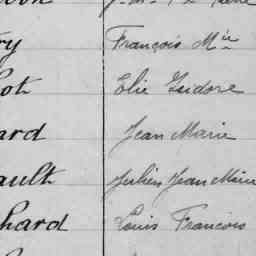 François Mie
Elie Isidore
ard Jean Marie
ault Julien Jean Marie
hard Louis François